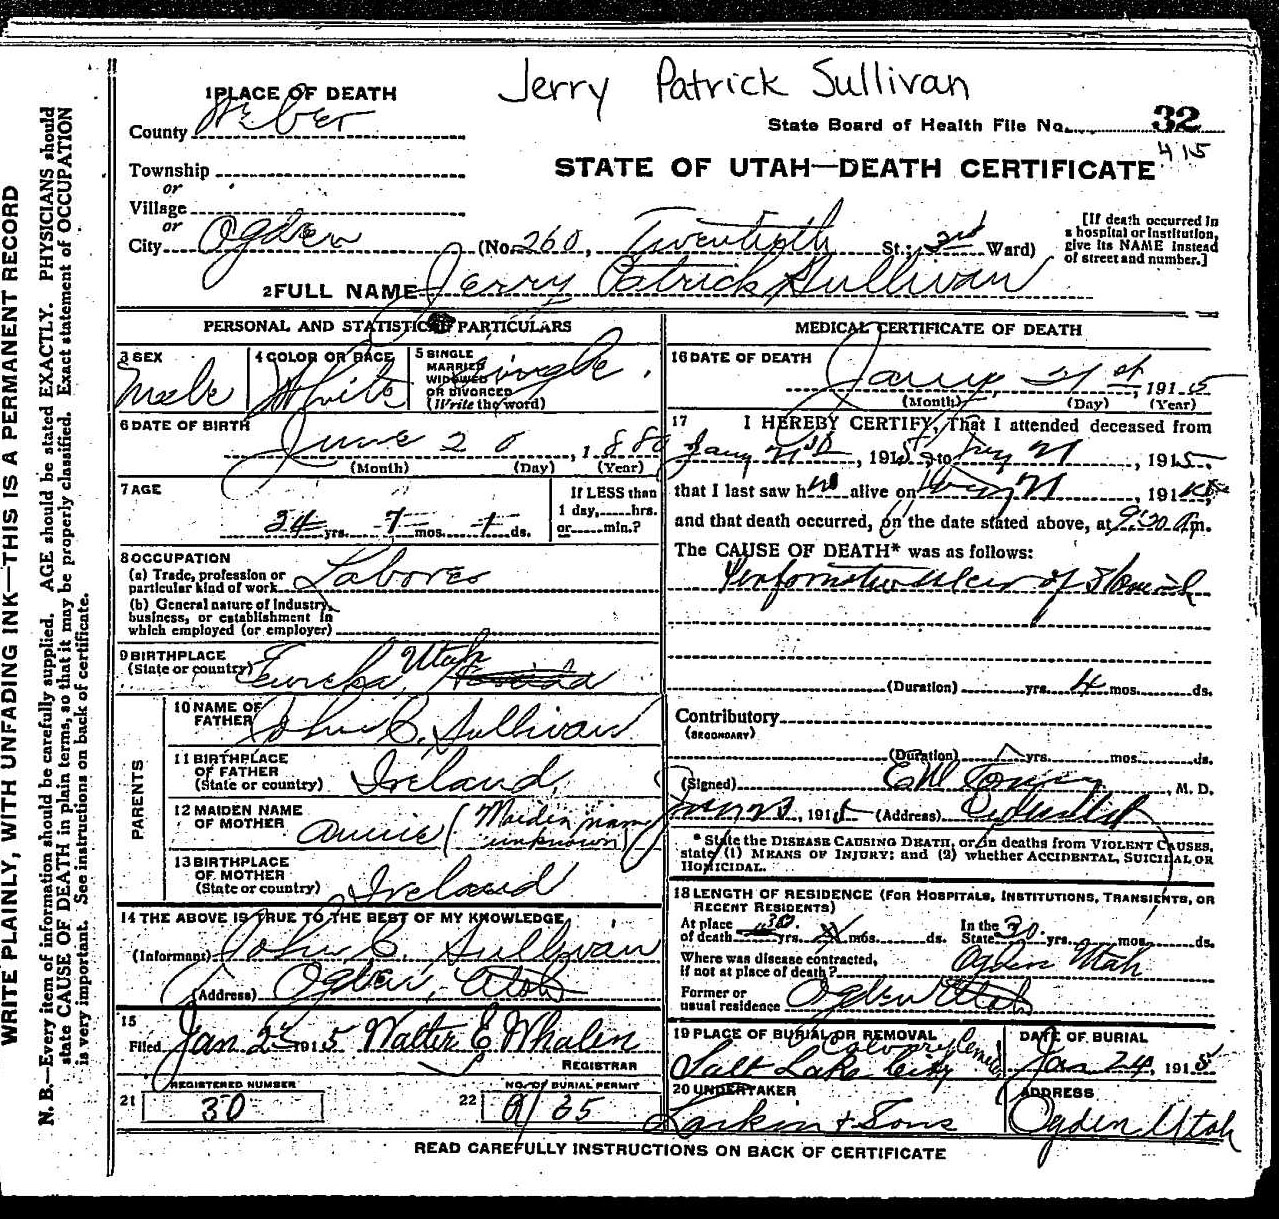 Jerry Patrick Sullivan
1 PLACE OF DEATH
County Weber
State Board of Health File No. 32
415
Township
or
Village
or
STATE OF UTAH—DEATH CERTIFICATE
City Ogden (No. 260, Twentieth St.; 3rd Ward)
[If death occurred in a hospital or institution, give its NAME instead of street and number.]
2 FULL NAME Jerry Patrick Sullivan
PERSONAL AND STATISTICAL PARTICULARS
3 SEX
Male
4 COLOR OR RACE
White
5 SINGLE
MARRIED
WIDOWED
OR DIVORCED
(Write the word)
Single.
6 DATE OF BIRTH
June 20, 1880
(Month) (Day) (Year)
7 AGE
34 yrs. 7 mos. 1 ds.
If LESS than
1 day, hrs.
or min.?
8 OCCUPATION
(a) Trade, profession or
particular kind of work Laborer
(b) General nature of Industry,
business, or establishment in
which employed (or employer)
9 BIRTHPLACE
(State or country) Eureka Utah
PARENTS
10 NAME OF
FATHER John C. Sullivan
11 BIRTHPLACE
OF FATHER
(State or country) Ireland,
12 MAIDEN NAME
OF MOTHER Annie (Maiden name unknown)
13 BIRTHPLACE
OF MOTHER
(State or country) Ireland
14 THE ABOVE IS TRUE TO THE BEST OF MY KNOWLEDGE
(Informant) John C. Sullivan
(Address) Ogden, Utah
15
Filed Jan 23 1915 Walter E Whalen
REGISTRAR
REGISTERED NUMBER
21 30
NO. OF BURIAL PERMIT
22
MEDICAL CERTIFICATE OF DEATH
16 DATE OF DEATH
Jany 21st, 1915
(Month) (Day) (Year)
17 I HEREBY CERTIFY, That I attended deceased from
Jany 21st, 1915, to Jany 21, 1915.
that I last saw him alive on Jany 21, 191
and that death occurred, on the date stated above, at 9:30 m.
The CAUSE OF DEATH* was as follows:
Ulcer of Stomach
(Duration) yrs. 4 mos. ds.
Contributory
(SECONDARY)
(Duration) yrs. mos. ds.
(Signed) , M. D.
, 191 (Address)
* State the DISEASE CAUSING DEATH, or, in deaths from VIOLENT CAUSES,
state (1) MEANS OF INJURY; and (2) whether ACCIDENTAL, SUICIDAL OR
HOMICIDAL.
18 LENGTH OF RESIDENCE (FOR HOSPITALS, INSTITUTIONS, TRANSIENTS, OR
RECENT RESIDENTS)
At place
of death 30 yrs. mos. ds.
In the
State 30 yrs. mos. ds.
Where was disease contracted,
if not at place of death? Ogden Utah
Former or
usual residence Ogden Utah
19 PLACE OF BURIAL OR REMOVAL
Calvary Cemetery
Salt Lake City
DATE OF BURIAL
Jan 24, 1915
20 UNDERTAKER
Larkin & Sons
ADDRESS
Ogden Utah
READ CAREFULLY INSTRUCTIONS ON BACK OF CERTIFICATE
WRITE PLAINLY, WITH UNFADING INK—THIS IS A PERMANENT RECORD
N. B.—Every item of information should be carefully supplied. AGE should be stated EXACTLY. PHYSICIANS should
state CAUSE OF DEATH in plain terms, so that it may be properly classified. Exact statement of OCCUPATION
is very important. See instructions on back of certificate.